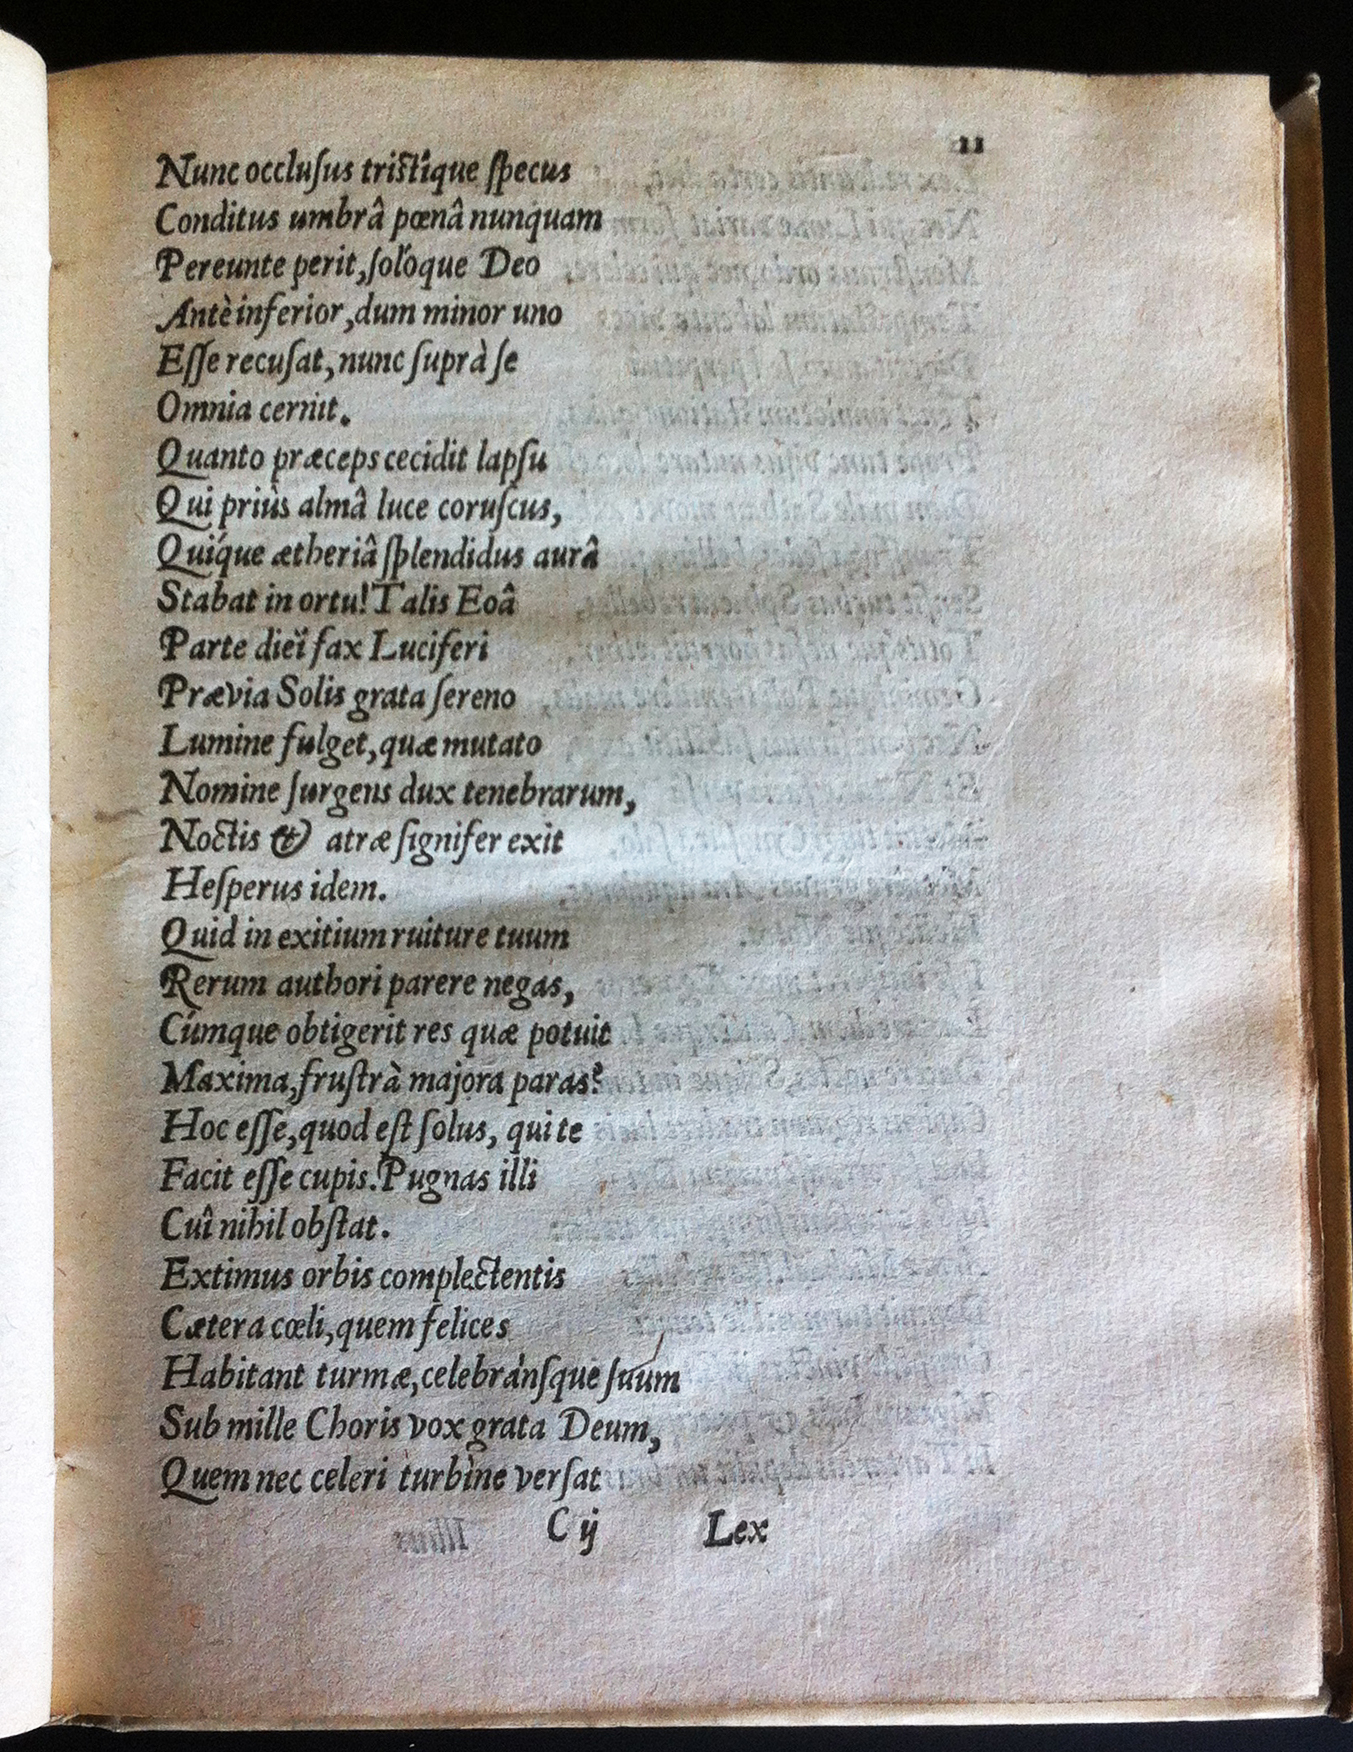 11
Nunc occluſus triſtîque ſpecus
Conditus umbrâ pœnâ nunquam
Pereunte perit, ſolóque Deo
Antè inferior, dum minor uno
Eſſe recuſat, nunc ſuprà ſe
Omnia cernit.
Quanto præceps cecidit lapſu
Qui priùs almâ luce coruſcus,
Quíque ætheriâ ſplendidus aurâ
Stabat in ortu! Talis Eoâ
Parte dieï fax Luciferi
Prævia Solis grata ſereno
Lumine fulget, quæ mutato
Nomine ſurgens dux tenebrarum,
Noctis & atræ ſignifer exit
Heſperus idem.
Quid in exitium ruiture tuum
Rerum authori parere negas,
Cúmque obtigerit res quæ potuit
Maxima, fruſtrà majora paras?
Hoc eſſe, quod eſt ſolus, qui te
Facit eſſe cupis. Pugnas illi
Cuî nihil obſtat.
Extimus orbis complectentis
Cætera cœli, quem felices
Habitant turmæ, celebránſque ſuum
Sub mille Choris vox grata Deum,
Quem nec celeri turbine verſat
C ij Lex